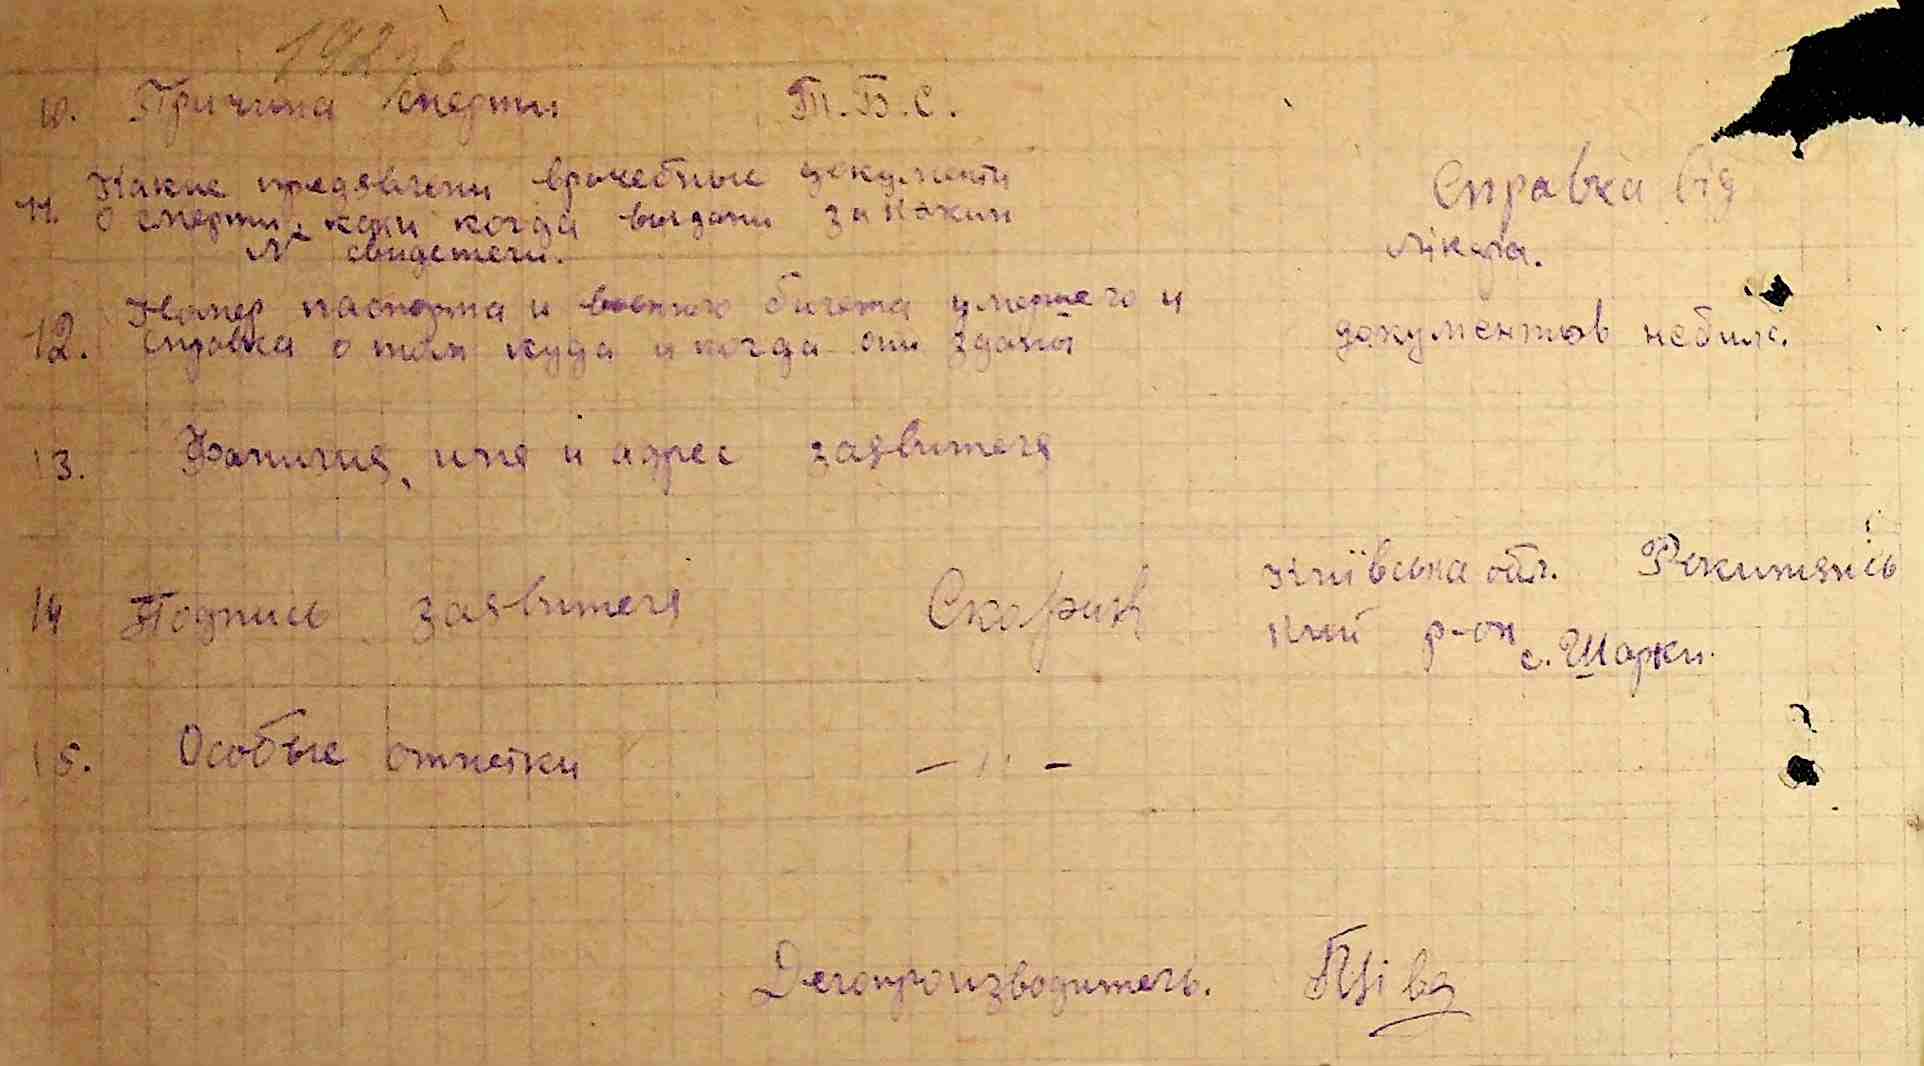 10. Причина смерти Т.Б.С.
11. Какие предявлени врачебные документи
о смерти, когда выдани за каким
№ свидетели.
Справка від
лікаря.
12. Номер паспорта и военного билета умершего и
справка о том куда и когда они здани
документов небило.
13. Фамилия, имя и адрес заявителя
14 Подпись заявителя
Київська обл. Рокитянсь
кий р-он
с. Шарки.
15. Особые отметки — " —
Делопроизводитель.